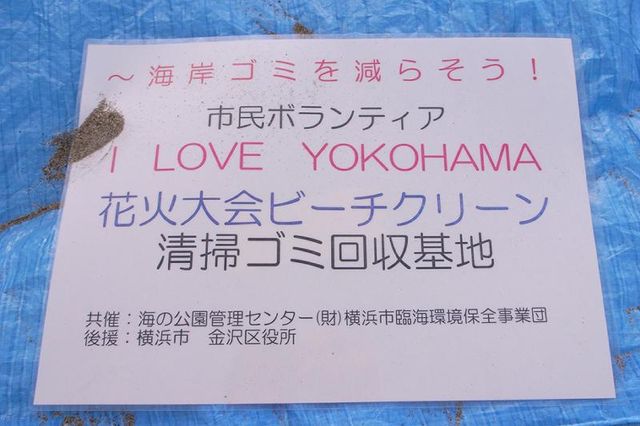 ～海岸ゴミを減らそう！
市民ボランティア
I LOVE YOKOHAMA
花火大会ビーチクリーン
清掃ゴミ回収基地
共催：海の公園管理センター(財)横浜市臨海環境保全事業団
後援：横浜市　金沢区役所